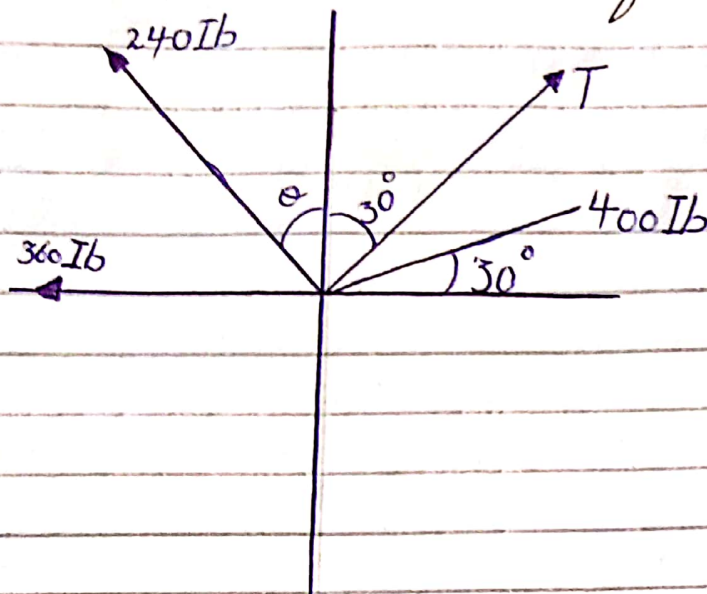 240Ib
T
θ
30°
400Ib
360Ib
30°